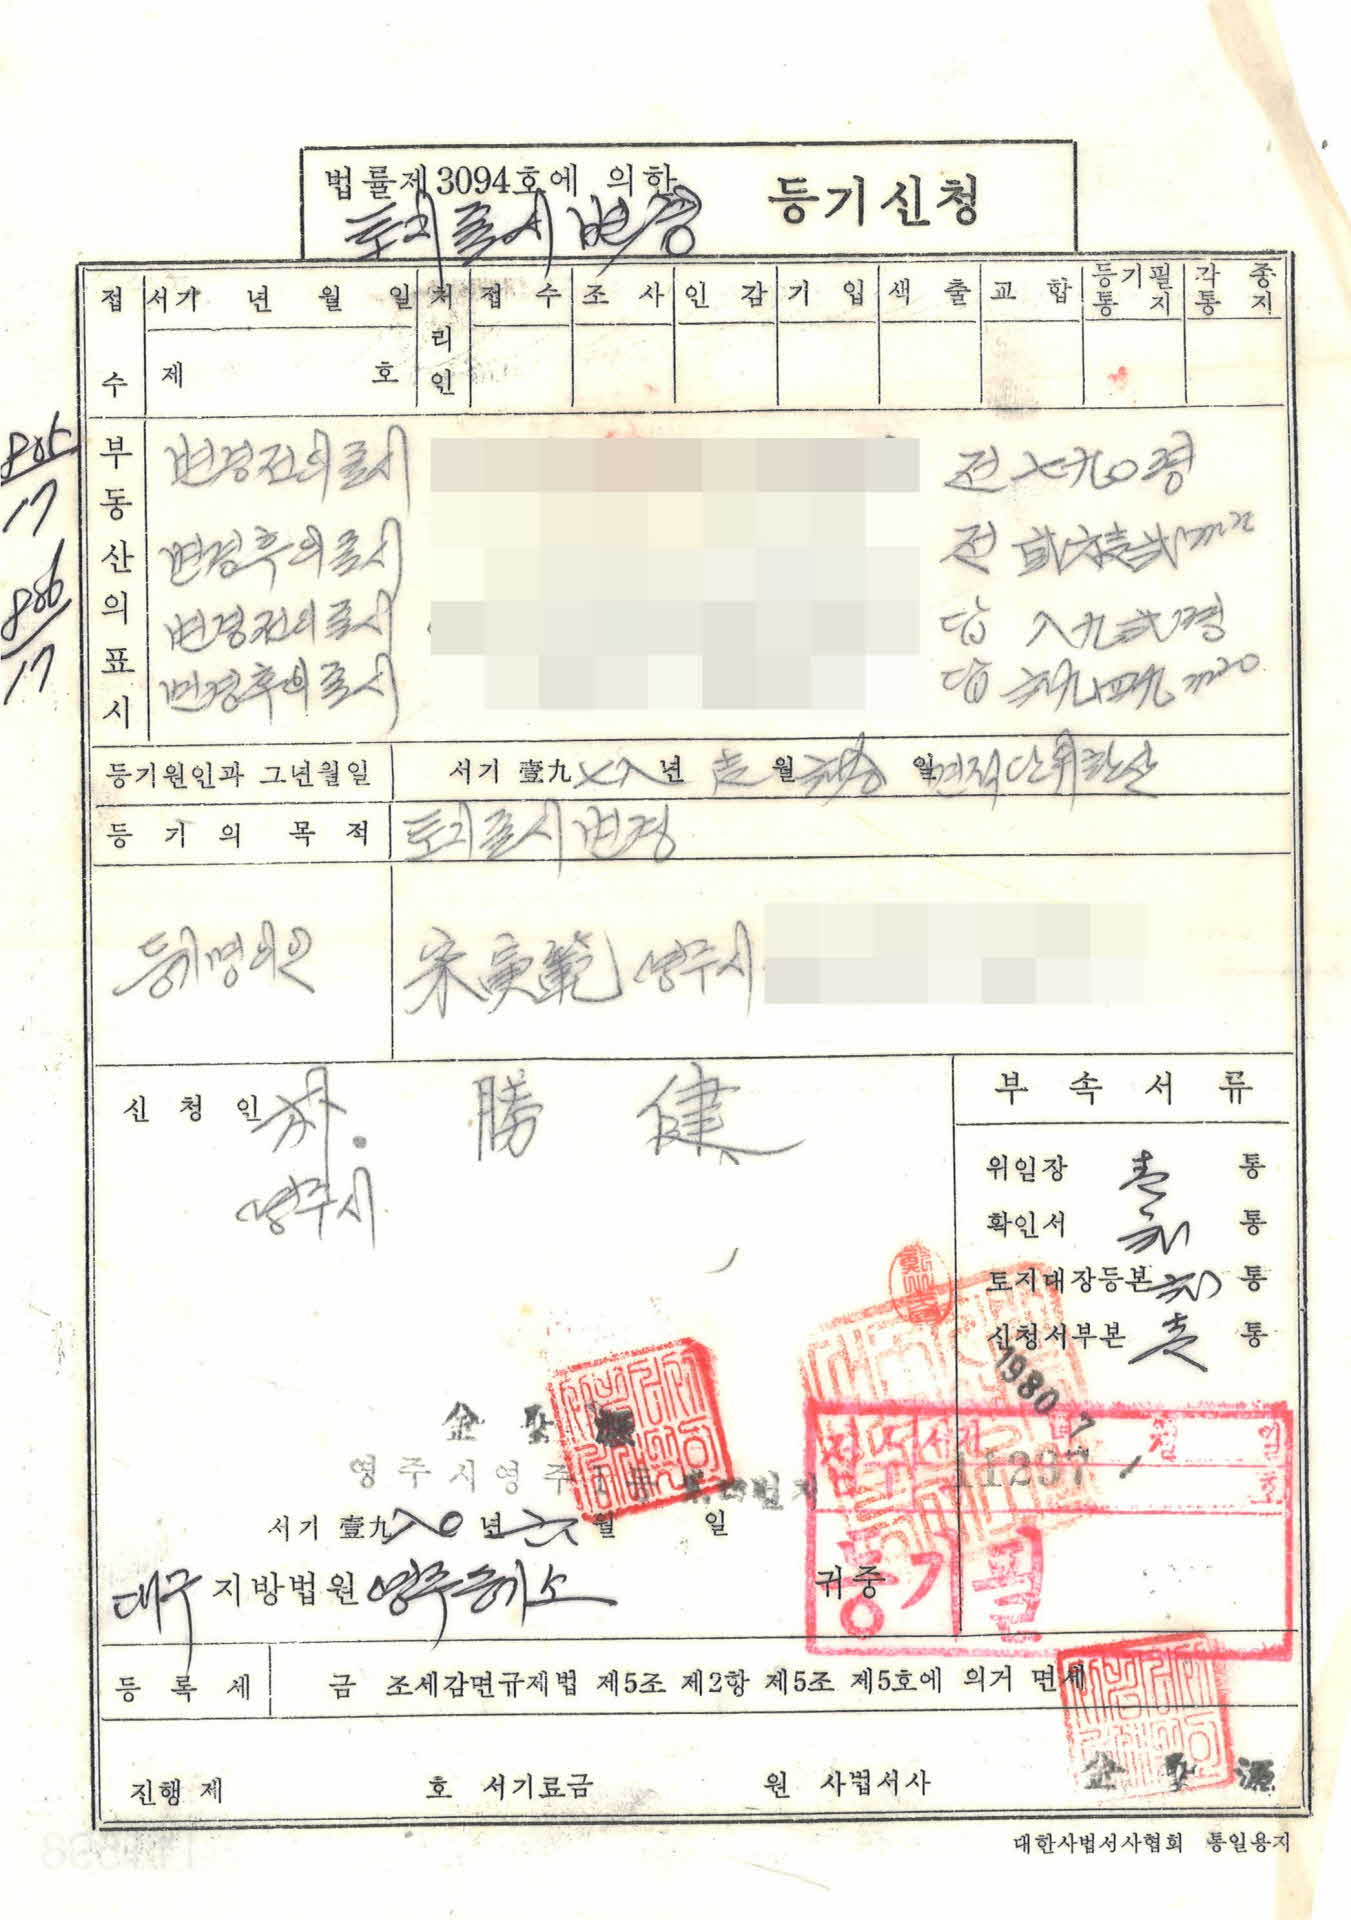 법률제3094호에 의한
토지표시변경 등기신청
접수 서기 년 월 일 처리인 접수 조사 인감 기입 색출 교합 등기필통지 각종통지
제 호
805/17
806/17
부동산의표시
변경전의표시 전 七九〇평
변경후의표시 전 m²
변경전의표시 답 八九弍평
변경후의표시 답 六九四九 m²
등기원인과 그년월일 서기 壹九七八년 壱월 일 면적단위환산
등기의 목적 토지표시변경
등기명의인 宋寅範 영주시
신청인 勝健
영주시
부속서류
위임장 壱 통
확인서 통
토지대장등본 통
신청서부본 壱 통
1980. 7
접수 서기 월 일
11297 호
등기필
金聖源
영주시영주 번지
서기 壹九八〇년 六월 일
대구지방법원 영주등기소 귀중
등록세 금 조세감면규제법 제5조 제2항 제5조 제5호에 의거 면세
진행 제 호 서기료금 원 사법서사 金聖源
대한사법서사협회 통일용지